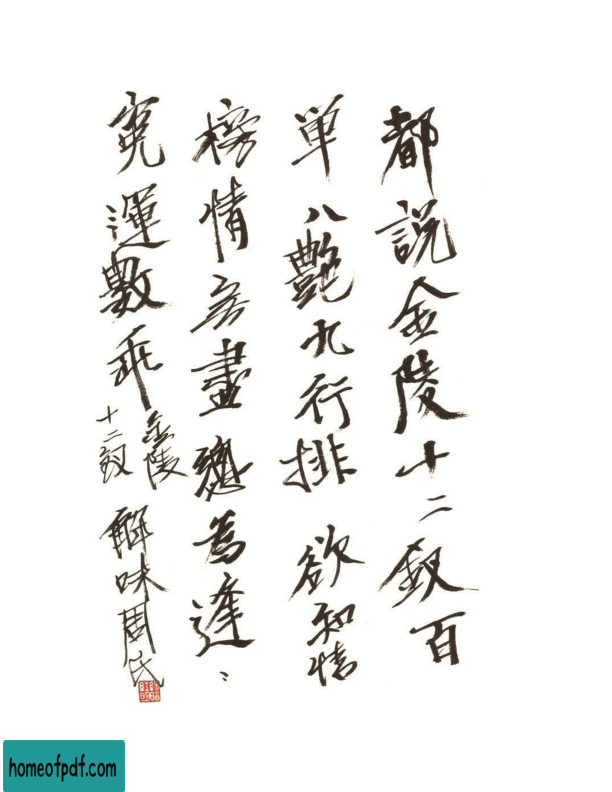 都説金陵十二釵百
單八艷九行排 欲知情
榜情盡總為逢
冤運數乖
金陵
十二釵
解味周氏
homeofpdf.com